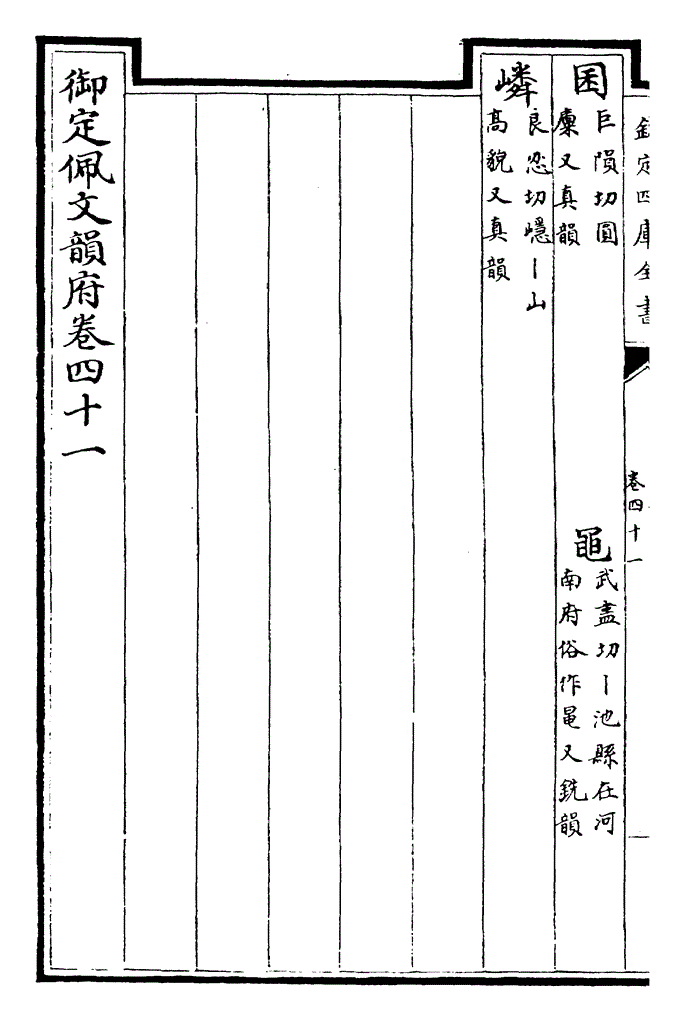 欽定四庫全書
卷四十一
囷
巨隕切圓
廩又真韻
黽
武盡切丨池縣在河
南府俗作黾又銑韻
嶙
良忍切嶾丨山
高貌又真韻
御定佩文韻府卷四十一